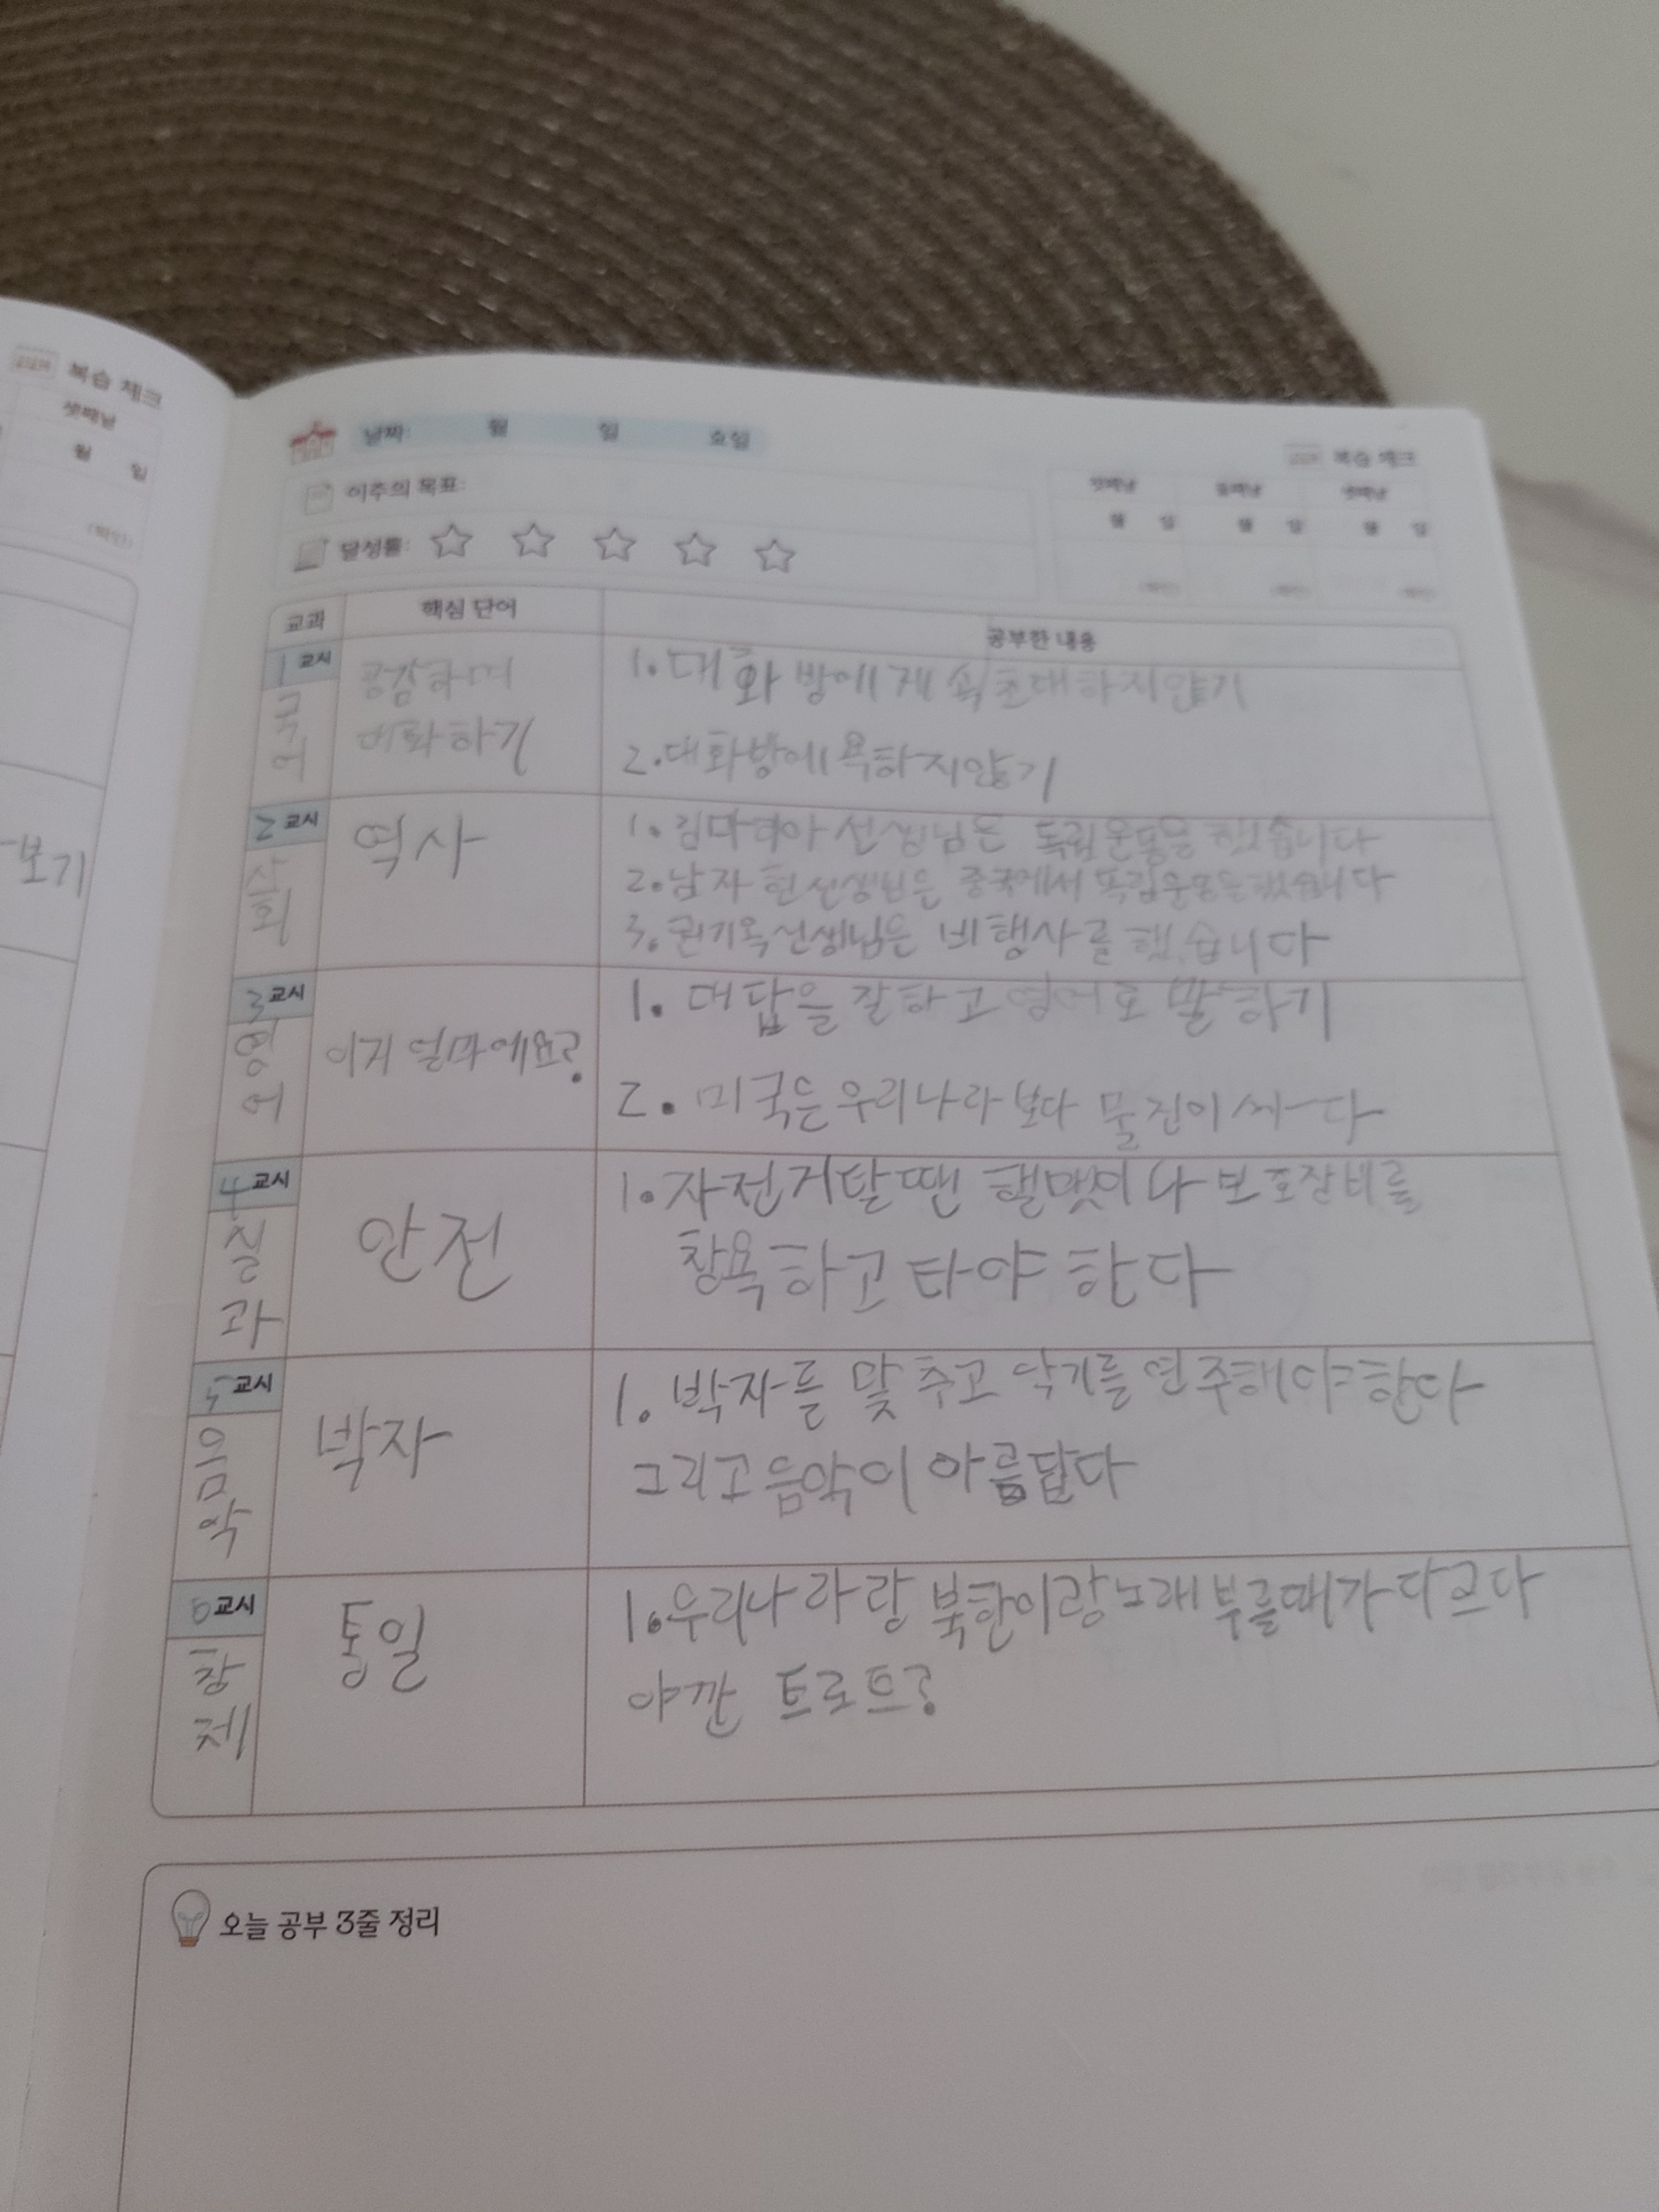 복습 체크
셋째날
월 일
(확인)
보기
날짜: 월 일 요일
이주의 목표:
달성률:
복습 체크
첫째날 둘째날 셋째날
월 일 월 일 월 일
(확인) (확인) (확인)
교과 핵심 단어 공부한 내용
1교시
국어
공감하며
대화하기
1. 대화방에 계속 초대하지않기
2. 대화방에 욕하지않기
2교시
사회
역사
1. 김마리아 선생님은 독립운동을 했습니다
2. 남자현선생님은 중국에서 독립운동을했습니다
3. 권기옥선생님은 비행사를 했습니다
3교시
영어
이거 얼마에요?
1. 대답을 잘하고 영어로 말하기
2. 미국은우리나라보다 물건이 싸다
4교시
실과
안전
1. 자전거탈땐 핼맷이나 보호장비를
착용하고 타야 한다
5교시
음악
박자
1. 박자를 맞추고 악기를 연주해야한다
그리고 음악이 아름답다
6교시
창체
통일
1. 우리나라랑 북한이랑노래부를때가다르다
야깐 트로트?
오늘 공부 3줄 정리